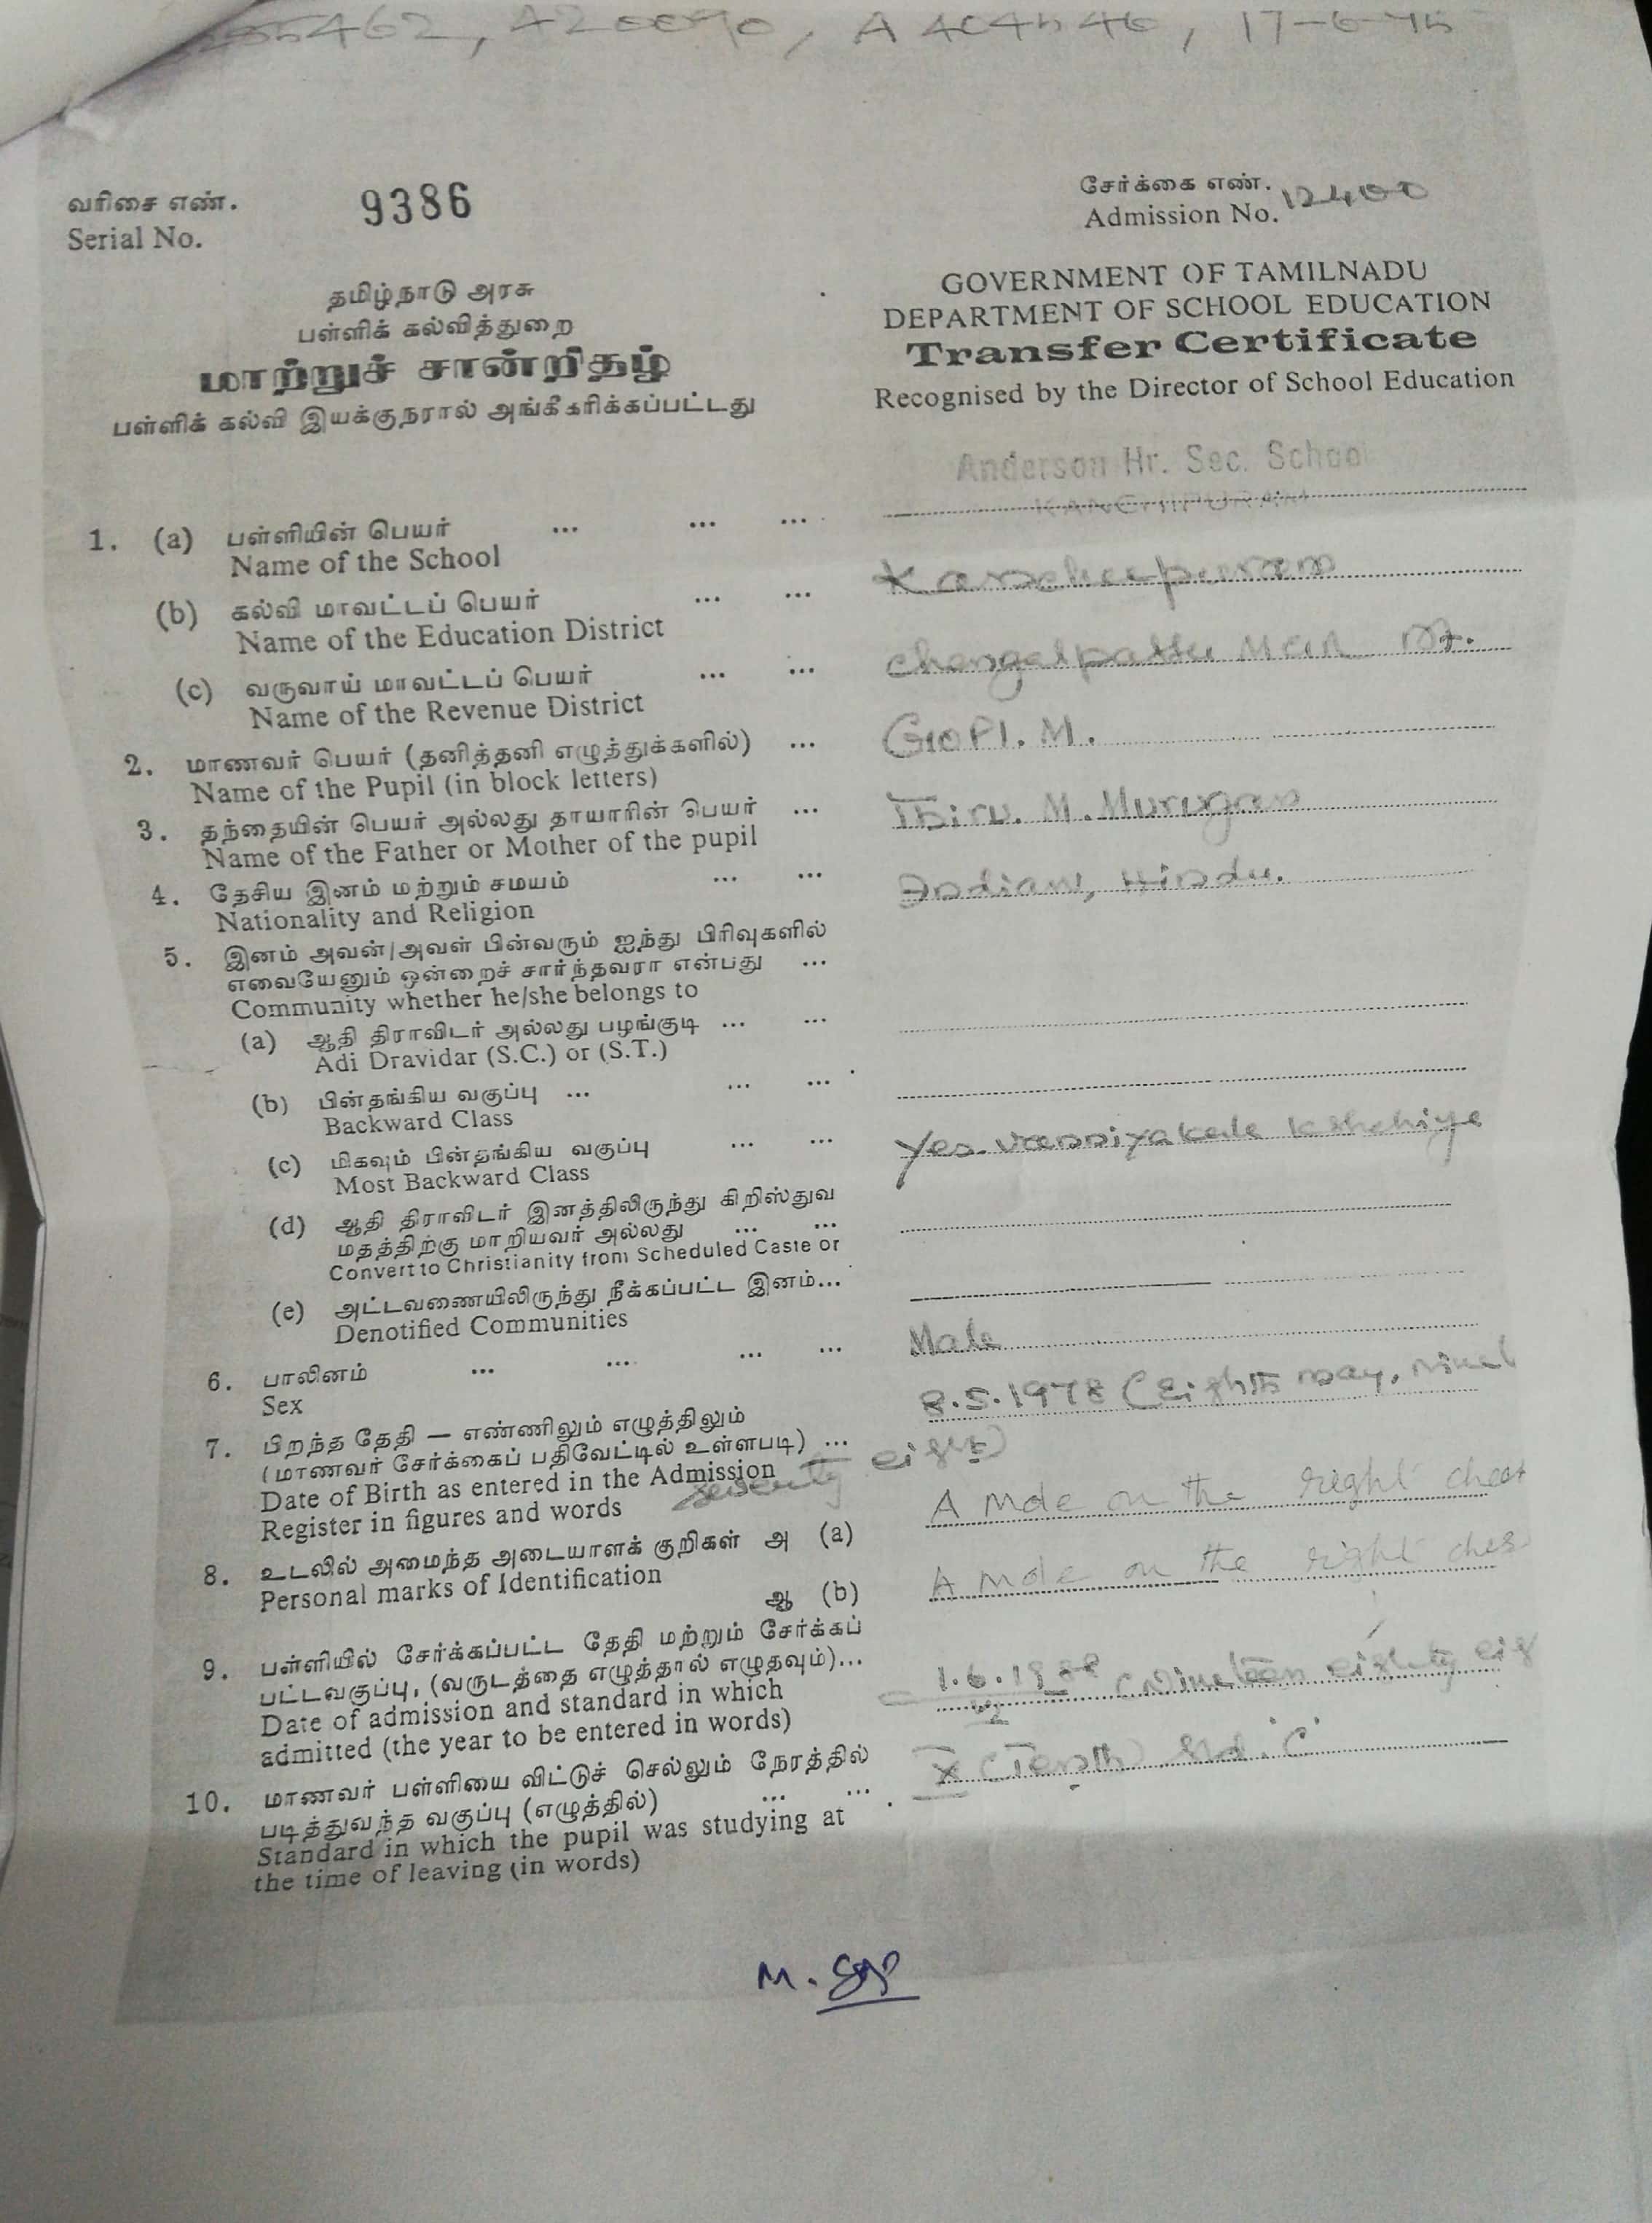 420090, A 404546, 17-6-75
வரிசை எண்.
Serial No.
9386
சேர்க்கை எண்.
Admission No. 12400
தமிழ்நாடு அரசு
பள்ளிக் கல்வித்துறை
மாற்றுச் சான்றிதழ்
பள்ளிக் கல்வி இயக்குநரால் அங்கீகரிக்கப்பட்டது
GOVERNMENT OF TAMILNADU
DEPARTMENT OF SCHOOL EDUCATION
Transfer Certificate
Recognised by the Director of School Education
Anderson Hr. Sec. School
KANCHIPURAM
1. (a) பள்ளியின் பெயர் ... ... ...
Name of the School
(b) கல்வி மாவட்டப் பெயர் ... ... Kancheepuram
Name of the Education District
(c) வருவாய் மாவட்டப் பெயர் ... ... Chengalpattu M.G.R. Dt.
Name of the Revenue District
2. மாணவர் பெயர் (தனித்தனி எழுத்துக்களில்) ... GOPI. M.
Name of the Pupil (in block letters)
3. தந்தையின் பெயர் அல்லது தாயாரின் பெயர் ... Thiru. M. Murugan
Name of the Father or Mother of the pupil
4. தேசிய இனம் மற்றும் சமயம் ... ... Indian, Hindu.
Nationality and Religion
5. இனம் அவன்/அவள் பின்வரும் ஐந்து பிரிவுகளில்
எவையேனும் ஒன்றைச் சார்ந்தவரா என்பது ...
Community whether he/she belongs to
(a) ஆதி திராவிடர் அல்லது பழங்குடி ... ...
Adi Dravidar (S.C.) or (S.T.)
(b) பின்தங்கிய வகுப்பு ... ... ...
Backward Class
(c) மிகவும் பின்தங்கிய வகுப்பு ... ... Yes. Vanniyakula
Most Backward Class
(d) ஆதி திராவிடர் இனத்திலிருந்து கிறிஸ்துவ
மதத்திற்கு மாறியவர் அல்லது ... ...
Convert to Christianity from Scheduled Caste or
(e) அட்டவணையிலிருந்து நீக்கப்பட்ட இனம்...
Denotified Communities
6. பாலினம் ... ... ... ... Male
Sex
7. பிறந்த தேதி — எண்ணிலும் எழுத்திலும் 8.5.1978 (Eighth May,
(மாணவர் சேர்க்கைப் பதிவேட்டில் உள்ளபடி) ...
Date of Birth as entered in the Admission
Register in figures and words seventy eight)
8. உடலில் அமைந்த அடையாளக் குறிகள் அ (a) A mole on the right chest
Personal marks of Identification
ஆ (b) A mole on the right ches
9. பள்ளியில் சேர்க்கப்பட்ட தேதி மற்றும் சேர்க்கப்
பட்டவகுப்பு, (வருடத்தை எழுத்தால் எழுதவும்)... 1.6.1988 (Nineteen eighty eig
Date of admission and standard in which VI
admitted (the year to be entered in words)
10. மாணவர் பள்ளியை விட்டுச் செல்லும் நேரத்தில் X (Tenth) Std. 'C'
படித்துவந்த வகுப்பு (எழுத்தில்) ... ...
Standard in which the pupil was studying at
the time of leaving (in words)